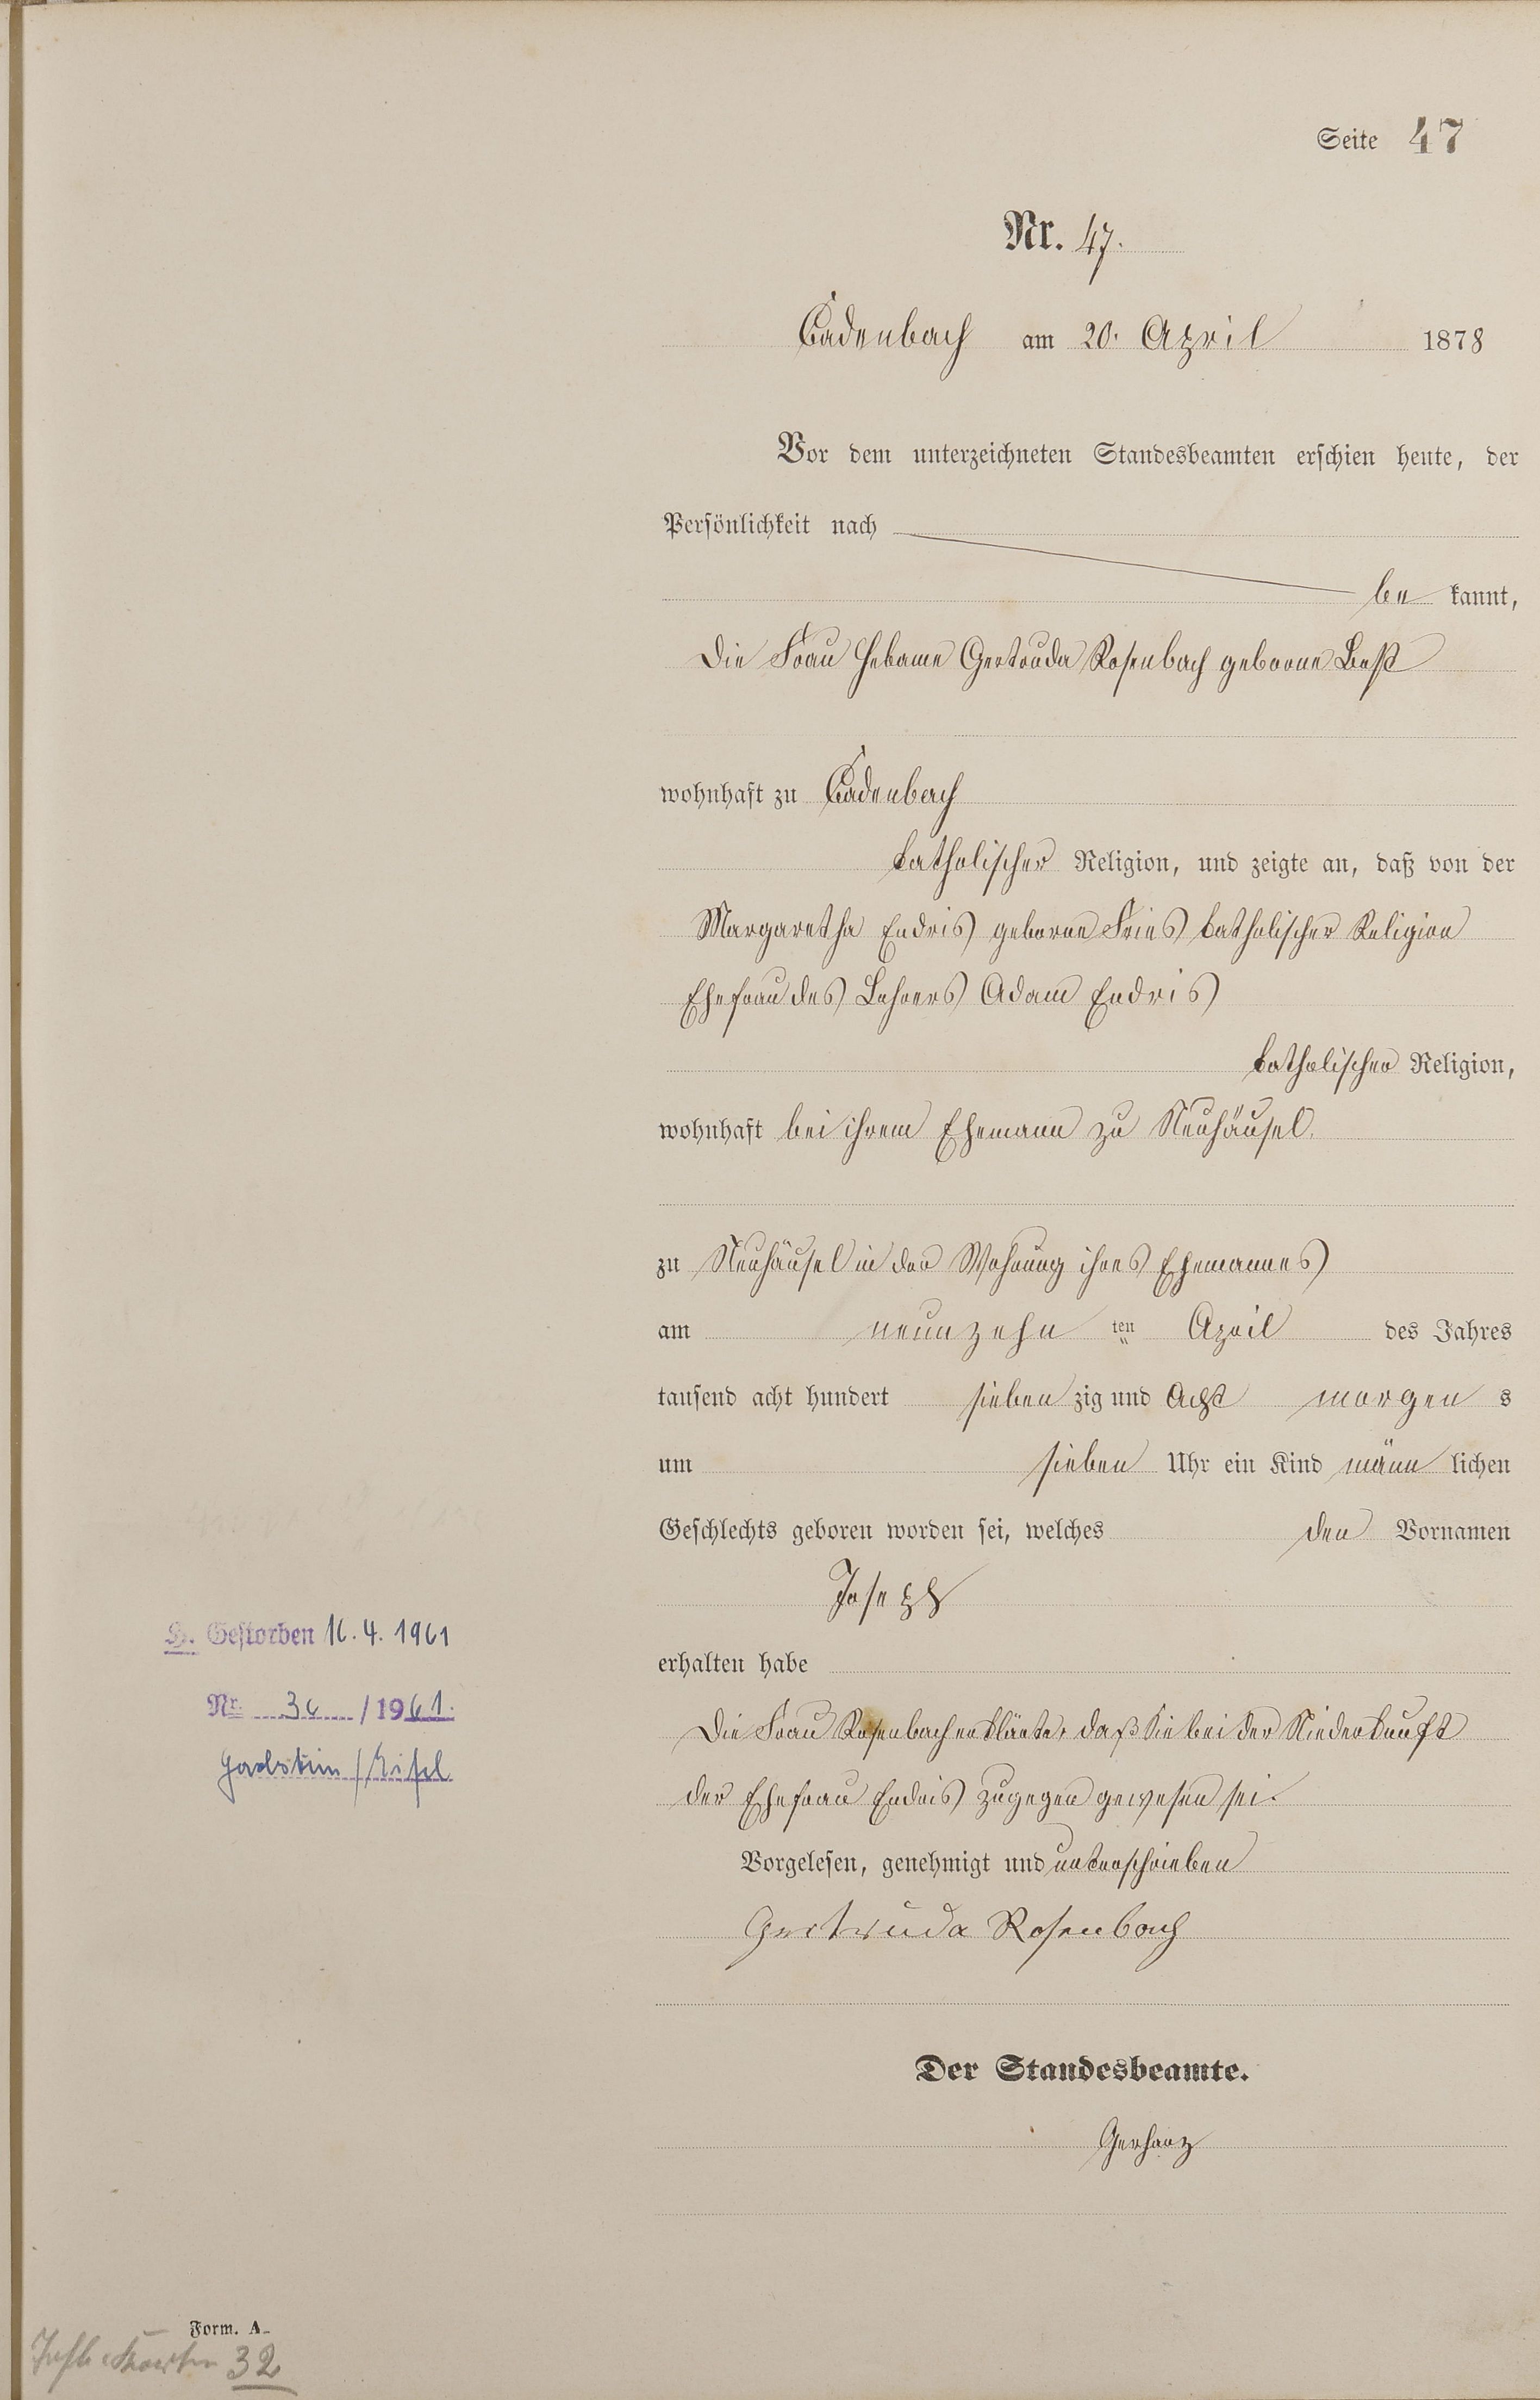 Seite 47
Nr. 47.
Cadenbach am 20. April 1878
Vor dem unterzeichneten Standesbeamten erschien heute, der
Persönlichkeit nach
be kannt,
Die Frau Hebame Gertruda Rosenbach geborne Best
wohnhaft zu Cadenbach
katholischer Religion, und zeigte an, daß von der
Margaretha Endris geborne Fries katholischer Religion
Ehefrau des Lehrers Adam Endris
katholischer Religion,
wohnhaft bei ihrem Ehemann zu Neuhäusel.
zu Neuhäusel in der Wohnung ihres Ehemannes
am neunzehn ten April des Jahres
tausend acht hundert sieben zig und Acht morgen s
um sieben Uhr ein Kind männ lichen
Geschlechts geboren worden sei, welches den Vornamen
Joseph
H. Gestorben 16.4.1961
erhalten habe
Nr. 36 / 1961.
Die Frau Rosenbach erklärte, daß Sie bei der Niederkunft
/Eifel
der Ehefrau Endris zugegen gewesen sei.
Vorgelesen, genehmigt und unterschrieben
Gertruda Rosenbach
Der Standesbeamte.
Gerharz
Form. A.
32